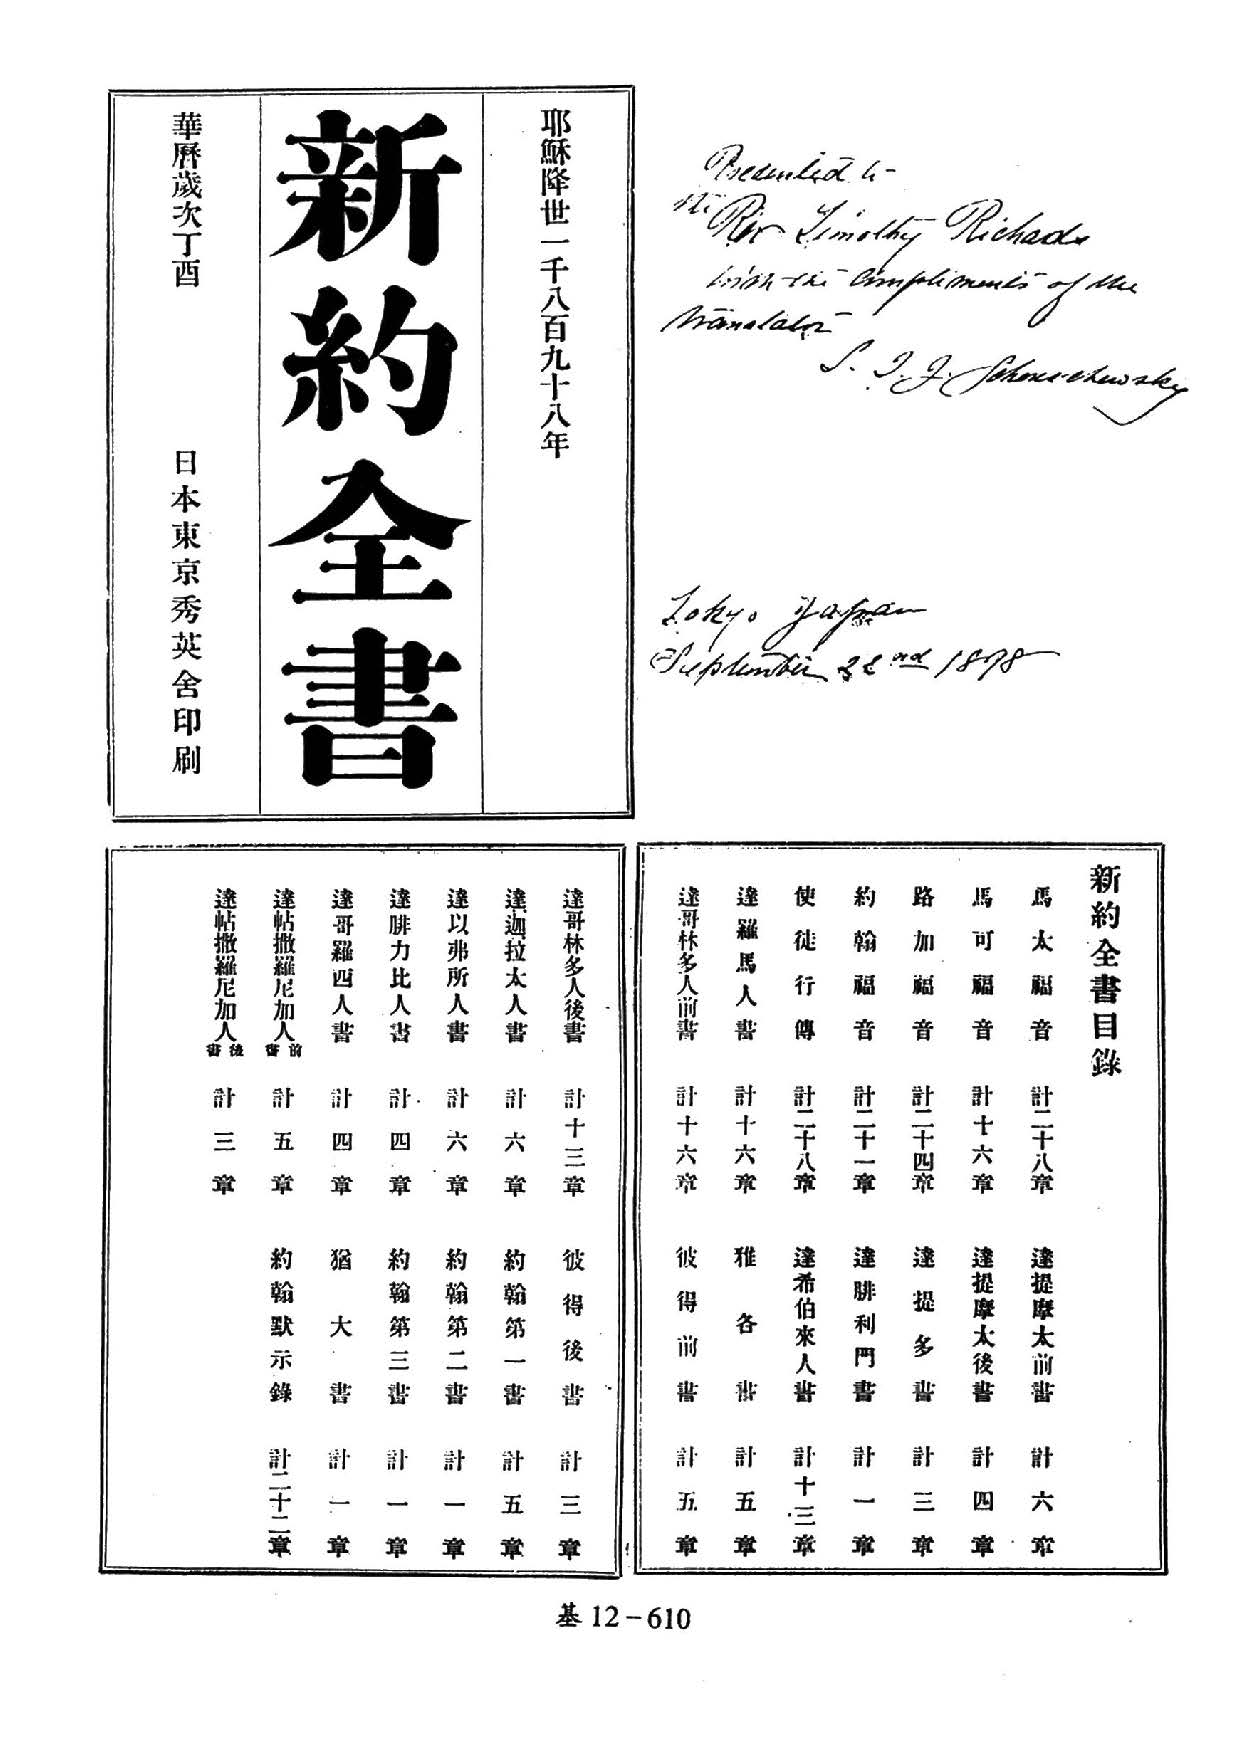 耶穌降世一千八百九十八年
新約全書
華曆歲次丁酉 日本東京秀英舍印刷
Presented to
the Rev Timothy Richards
with the compliments of the
translator
S. I. J. Schereschewsky
Tokyo Japan
September 22nd 1898
新約全書目錄
馬太福音 計二十八章
馬可福音 計十六章
路加福音 計二十四章
約翰福音 計二十一章
使徒行傳 計二十八章
達羅馬人書 計十六章
達哥林多人前書 計十六章
達提摩太前書 計六章
達提摩太後書 計四章
達提多書 計三章
達腓利門書 計一章
達希伯來人書 計十三章
雅各書 計五章
彼得前書 計五章
達哥林多人後書 計十三章
達迦拉太人書 計六章
達以弗所人書 計六章
達腓力比人書 計四章
達哥羅西人書 計四章
達帖撒羅尼加人前書 計五章
達帖撒羅尼加人後書 計三章
彼得後書 計三章
約翰第一書 計五章
約翰第二書 計一章
約翰第三書 計一章
猶大書 計一章
約翰默示錄 計二十二章
基12-610